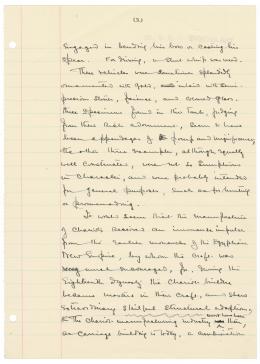 (3)
engaged in bending his bow or casting his
spear. For driving, a short whip was used.
These vehicles were sometimes splendidly
ornamented with gold, inlaid with semi-
precious stones, faience, and coloured glass.
Three specimens found in this tomb, judging
from their rich adornment, seem to have
been appendages of pomp and magnificence;
the other three examples, although equally
well constructed, were not so sumptuous
in character, and were probably intended
for general purposes, such as for hunting
or promenading.
It would seem that the manufacture
of chariots received an immense impulse
from the earlier monarchs of the Egyptian
New Empire, by whom the craft was
much encouraged, for, during the
Eighteenth Dynasty the chariot builders
became masters in their craft, and show
extraordinary skilful structural additions,
the chariot manufacturing industry must have been
as carriage building is today, a combination